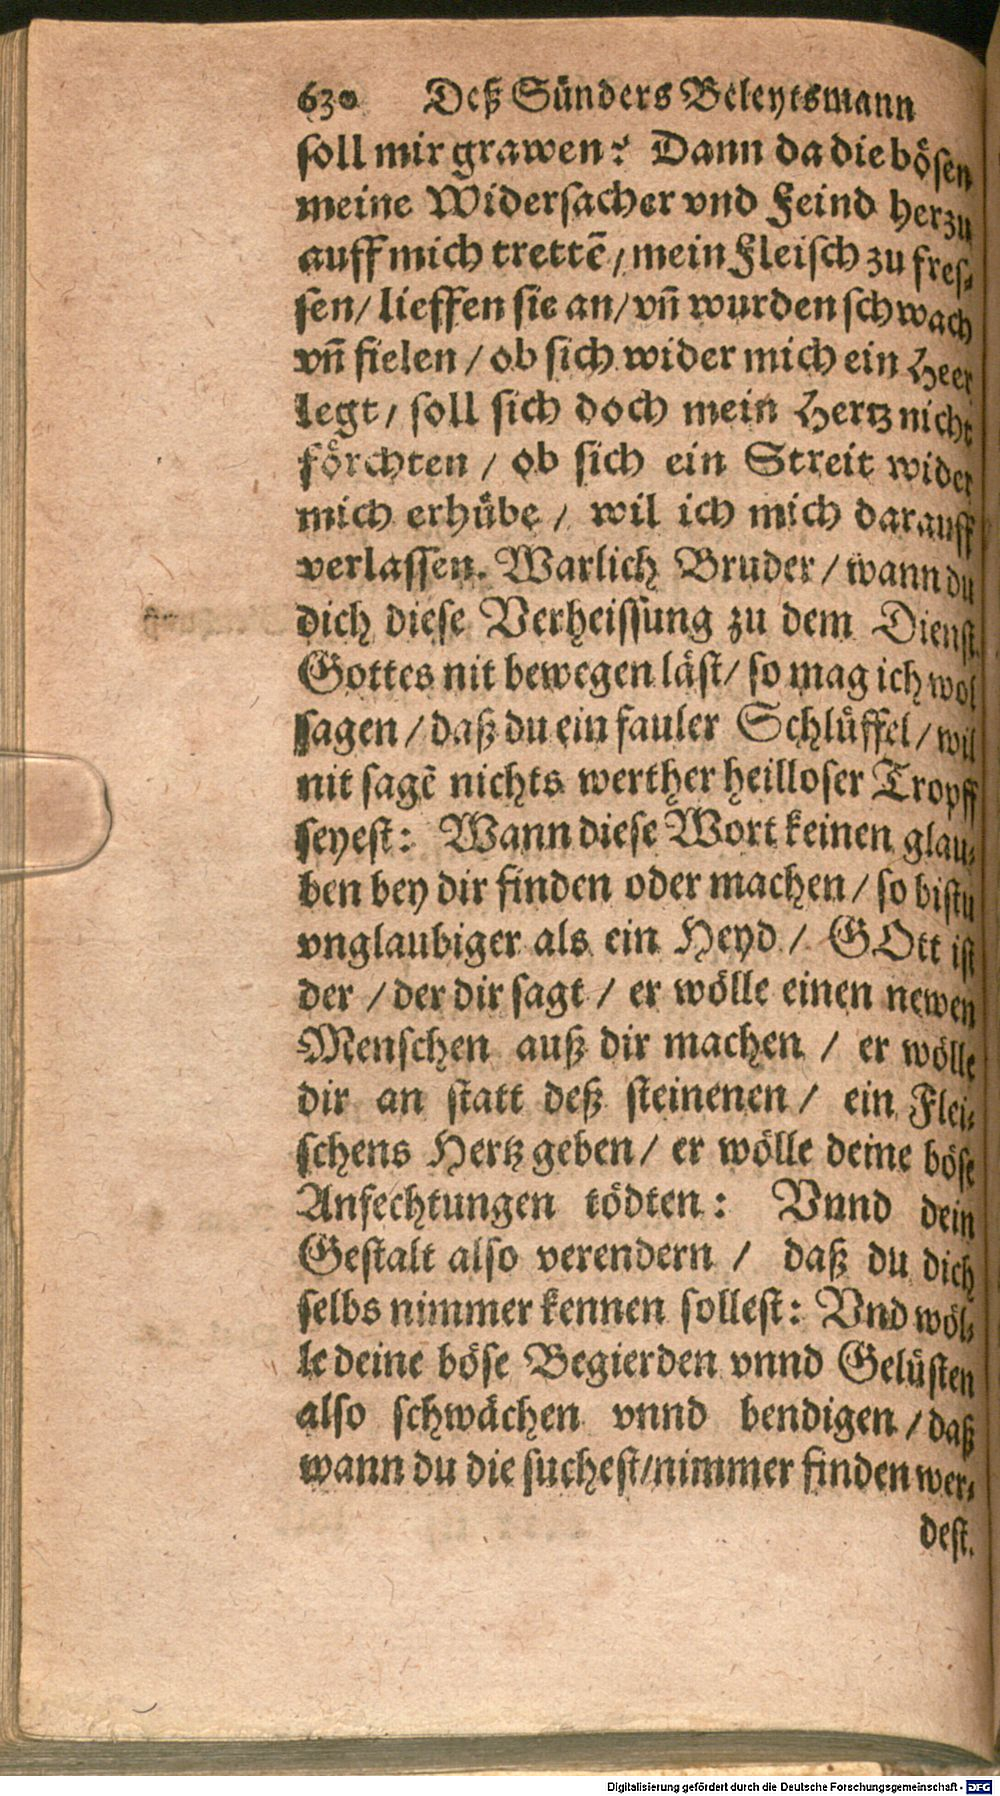 630 Deß Sünders Beleytsmann
soll mir grawen? Dann da die bösen
meine Widersacher vnd Feind herzu
auff mich trettē / mein Fleisch zu fres-
sen / lieffen sie an / vñ wurden schwach
vñ fielen / ob sich wider mich ein Heer
legt / soll sich doch mein Hertz nicht
förchten / ob sich ein Streit wider
mich erhübe / wil ich mich darauff
verlassen. Warlich Bruder / wann du
dich diese Verheissung zu dem Dienst
Gottes nit bewegen läst / so mag ich wol
sagen / daß du ein fauler Schlüffel / wil
nit sagē nichts werther heilloser Tropff
seyest: Wann diese Wort keinen glau-
ben bey dir finden oder machen / so bistu
vnglaubiger als ein Heyd / GOtt ist
der / der dir sagt / er wölle einen newen
Menschen auß dir machen / er wölle
dir an statt deß steinenen / ein Flei-
schens Hertz geben / er wölle deine böse
Anfechtungen tödten: Vnnd dein
Gestalt also verendern / daß du dich
selbs nimmer kennen sollest: Vnd wöl-
le deine böse Begierden vnnd Gelüsten
also schwächen vnnd bendigen / daß
wann du die suchest / nimmer finden wer-
dest.
Digitalisierung gefördert durch die Deutsche Forschungsgemeinschaft - DFG